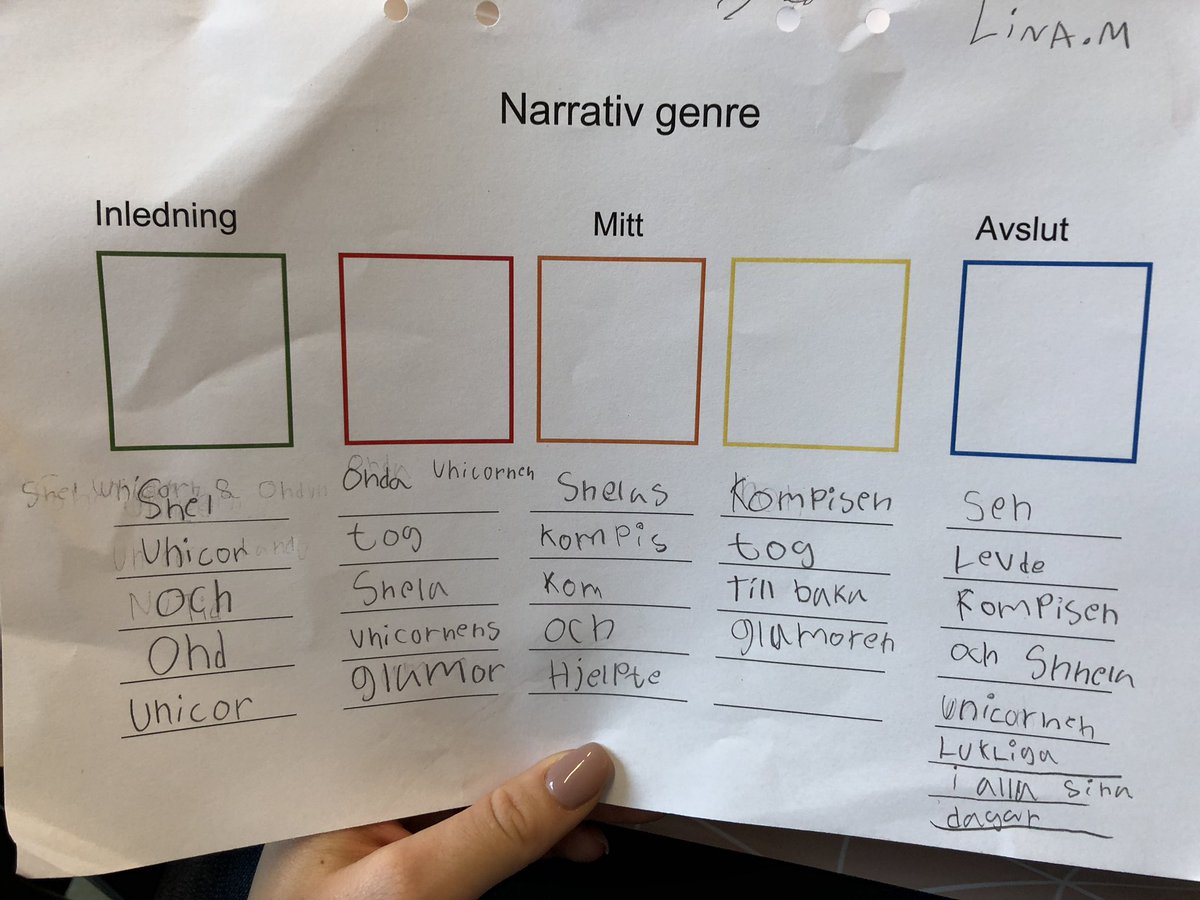 LiNA.M
Narrativ genre
Inledning
Mitt
Avslut
Snel
Unicor
och
Ond
Unicor
Onda Unicornen
tog
Snela
unicornens
glamor
Snelas
kompis
kom
och
Hjelpte
Kompisen
tog
till baka
glamoren
Sen
Levde
Kompisen
och Snnela
unicornen
LukLiga
i alla sina
dagar